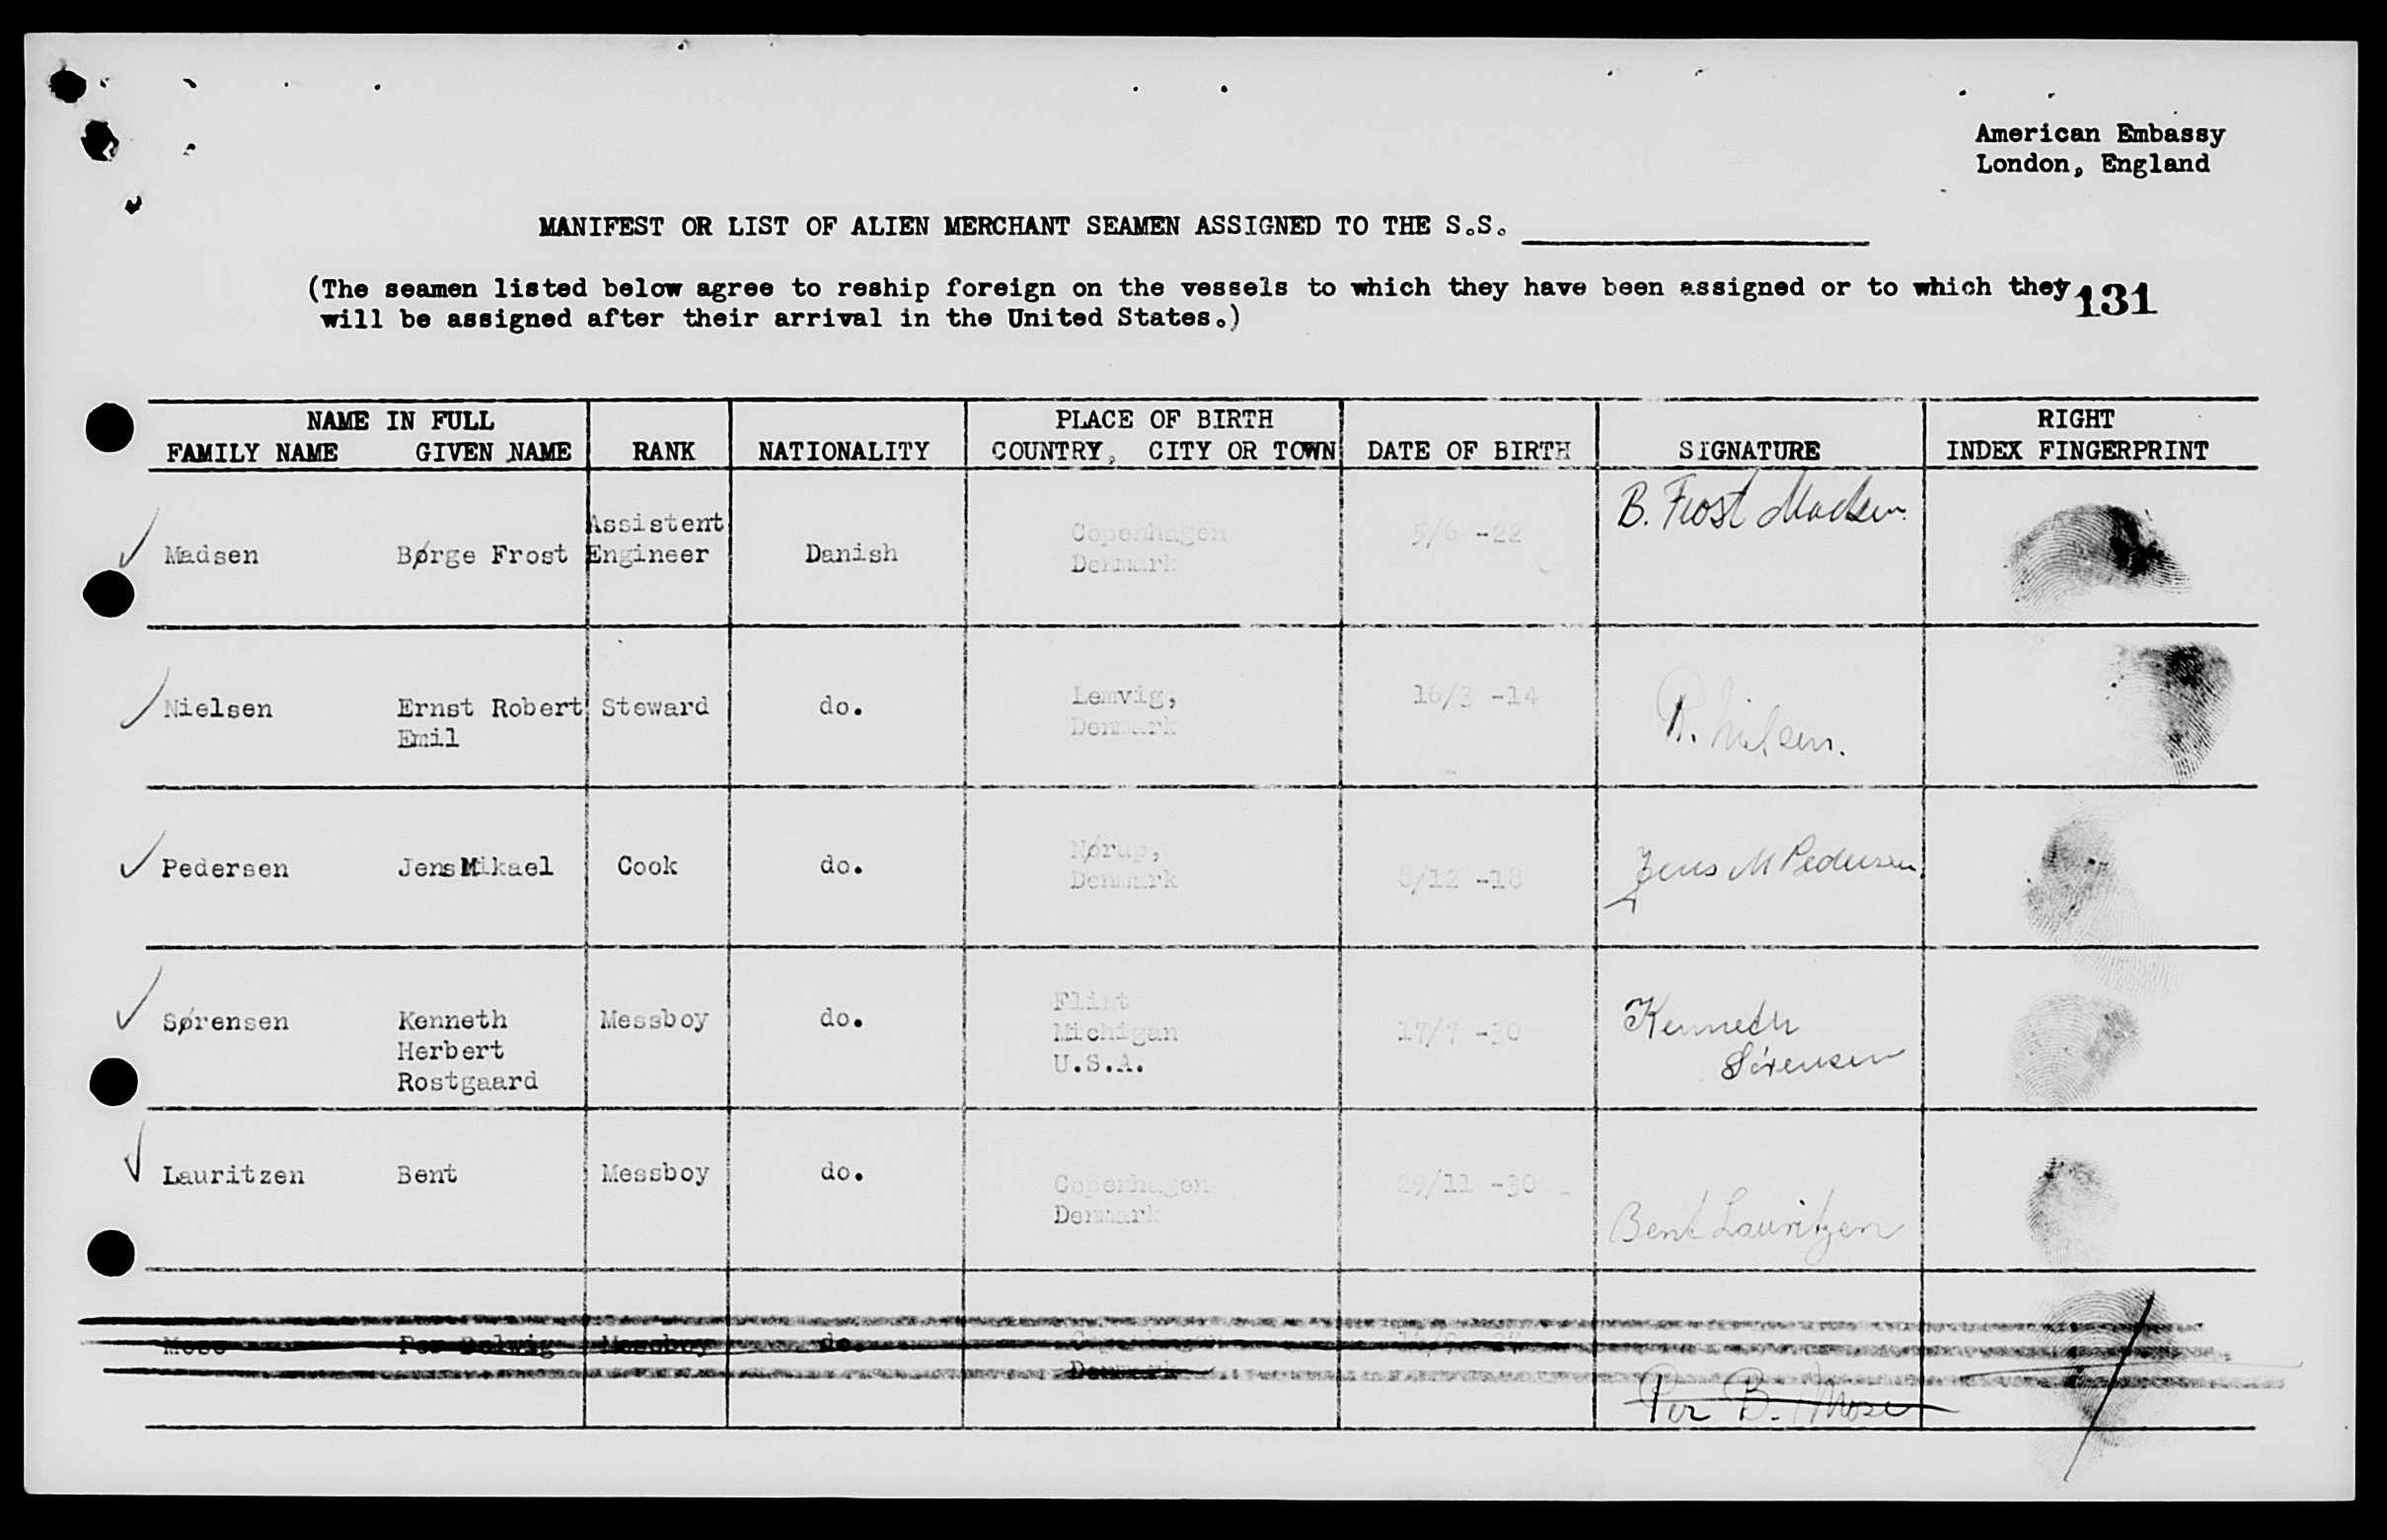 American Embassy
London, England
MANIFEST OR LIST OF ALIEN MERCHANT SEAMEN ASSIGNED TO THE S.S.
(The seamen listed below agree to reship foreign on the vessels to which they have been assigned or to which they
131
will be assigned after their arrival in the United States.)
NAME IN FULL PLACE OF BIRTH RIGHT
FAMILY NAME GIVEN NAME RANK NATIONALITY COUNTRY, CITY OR TOWN DATE OF BIRTH SIGNATURE INDEX FINGERPRINT
B. Frost Madsen
Assistent Copenhagen 5/6 -22
Madsen Børge Frost Engineer Danish Denmark
Nielsen Ernst Robert Steward do. Lemvig, 16/3 -14
Emil Denmark R. Nielsen.
Nørup,
Pedersen Jens Mikael Cook do. Denmark 8/12 -18 Jens M Pedersen
Flint
Sørensen Kenneth Messboy do. Michigan 17/7 -30 Kenneth
Herbert U.S.A. Sörensen
Rostgaard
Lauritzen Bent Messboy do. Copenhagen 29/11 -30
Denmark Bent Lauritzen
Mose Per Messboy do. Copenhagen
Denmark
Per B. Mose